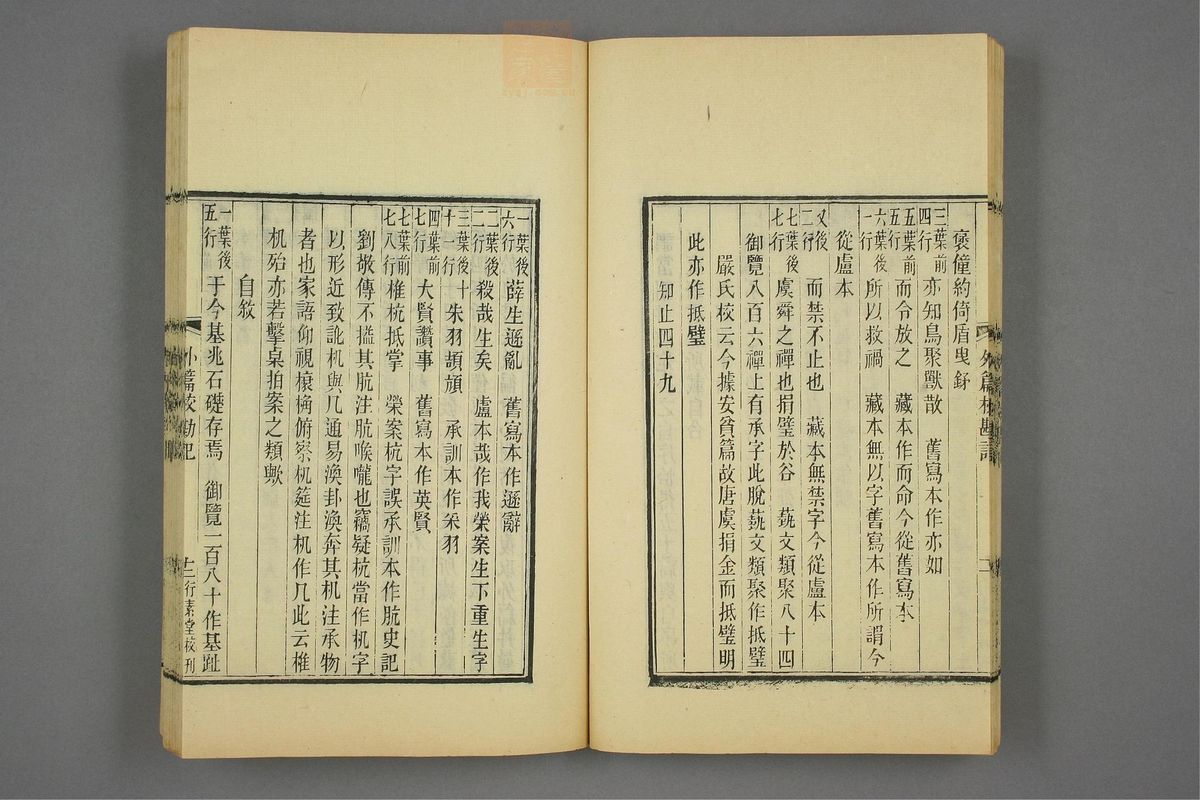 褒僮約倚盾曳鉨
三葉前四行　亦知鳥聚獸散　舊寫本作亦如
五葉前五行　而令放之　藏本作而命今從舊寫本
六葉後一行　所以救禍　藏本無以字舊寫本作所謂今
從盧本
又後二行　而禁不止也　藏本無禁字今從盧本
七葉後七行　虞舜之禪也捐璧於谷　蓺文類聚八十四
御覽八百六禪上有承字此脫蓺文類聚作抵璧
嚴氏校云今據安貧篇故唐虞捐金而抵璧明
此亦作抵璧
知止四十九
外篇校勘記
一葉後六行　薛生遜亂　舊寫本作遜辭
二葉後二行　殺哉生矣　盧本哉作我榮案生下重生字
三葉後十一行　朱羽頡頏　承訓本作采羽
四葉前七行　大賢讚事　舊寫本作英賢
七葉前七八行　椎杭抵掌　榮案杭字誤承訓本作肮史記
劉敬傳不搤其肮注肮喉嚨也竊疑杭當作机字
以形近致訛机與几通易渙卦渙奔其机注承物
者也家語仰視榱桷俯察机筵注机作几此云椎
机殆亦若擊桌拍案之類歟
自敘
一葉後五行　于今基兆石礎存焉　御覽一百八十作基趾
外篇校勘記
十二
行素堂校刊